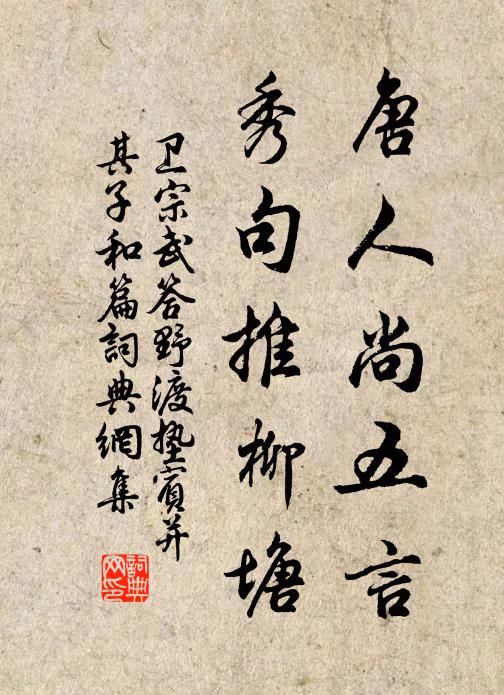 唐人尚五言
秀句推柳塘
卫宗武答野渡垫宾并
其子和篇詞典網集
詞典網印